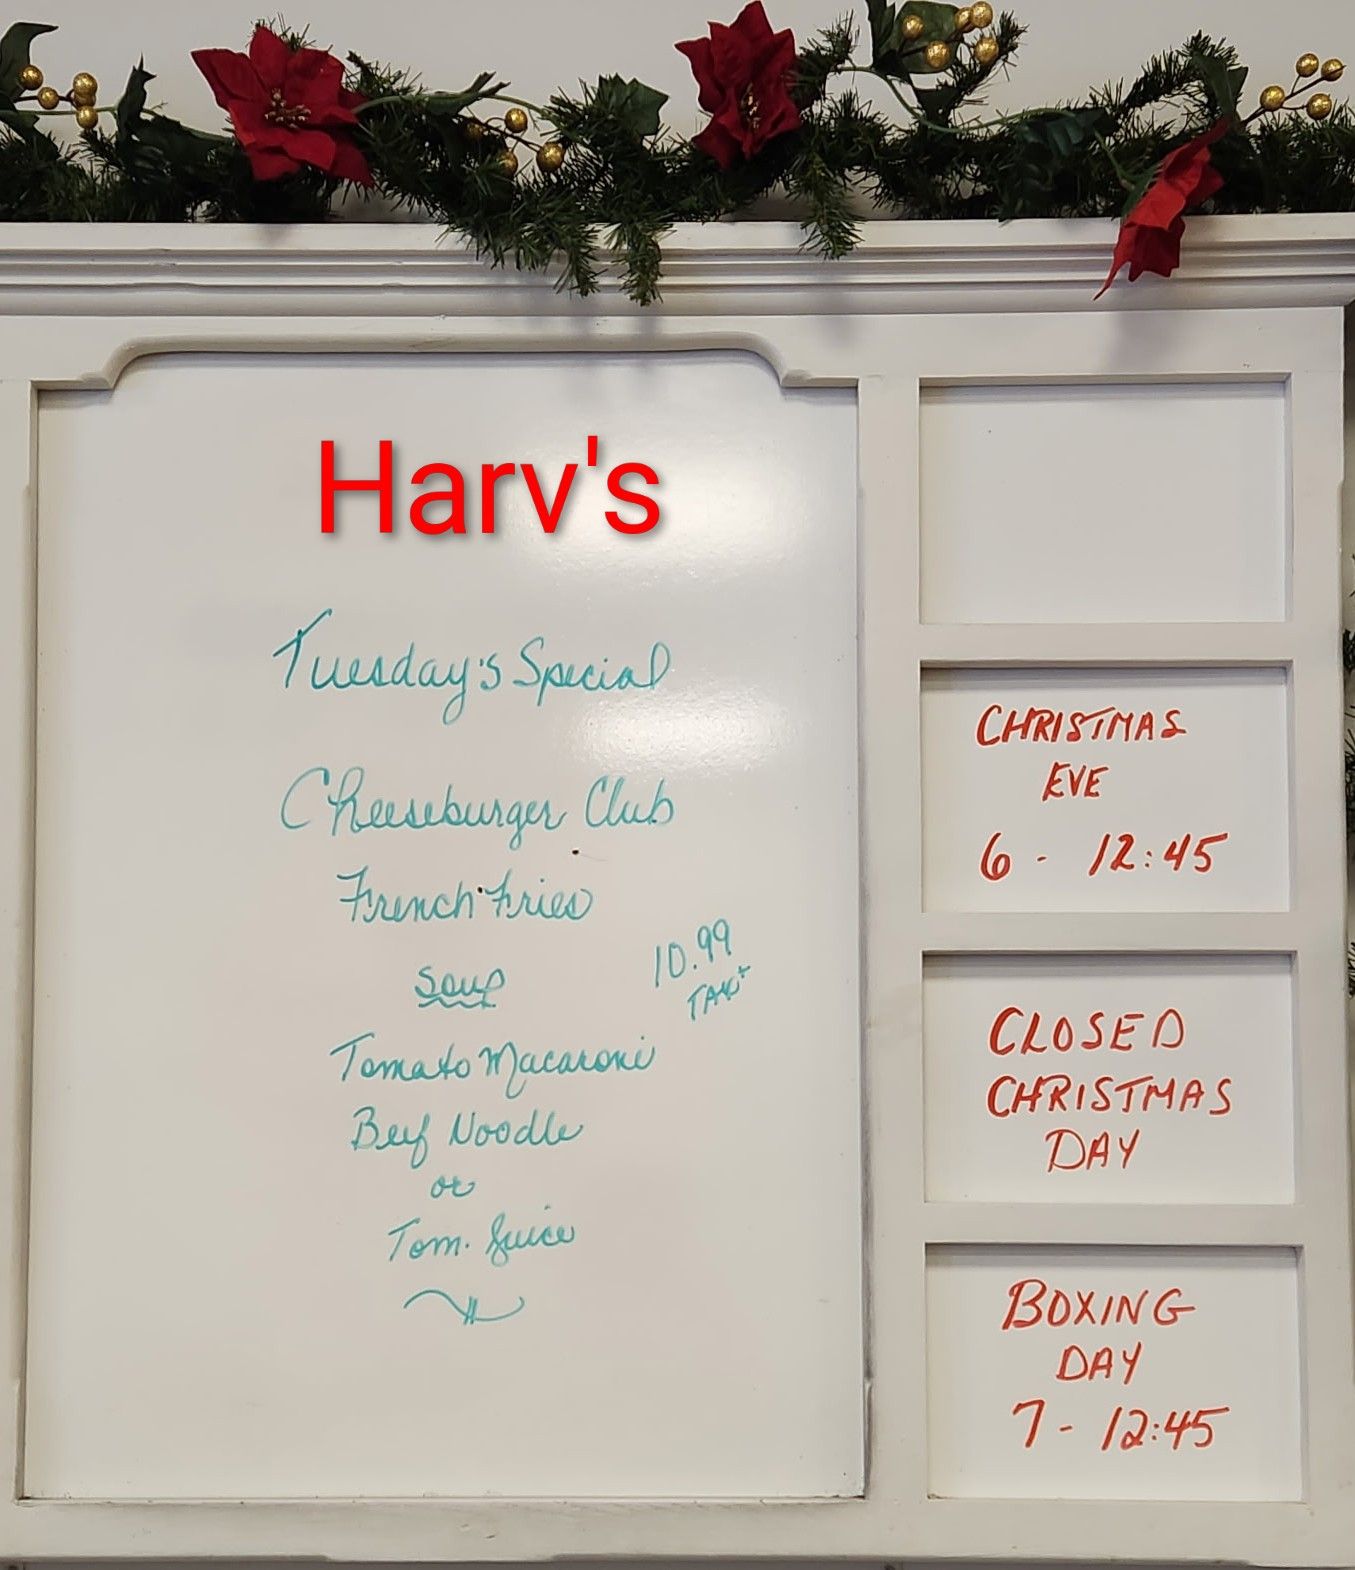 Harv's
Tuesday's Special
Cheeseburger Club
French Fries
Soup
10.99
TAX+
Tomato Macaroni
Beef Noodle
or
Tom. Juice
CHRISTMAS
EVE
6 - 12:45
CLOSED
CHRISTMAS
DAY
BOXING
DAY
7 - 12:45